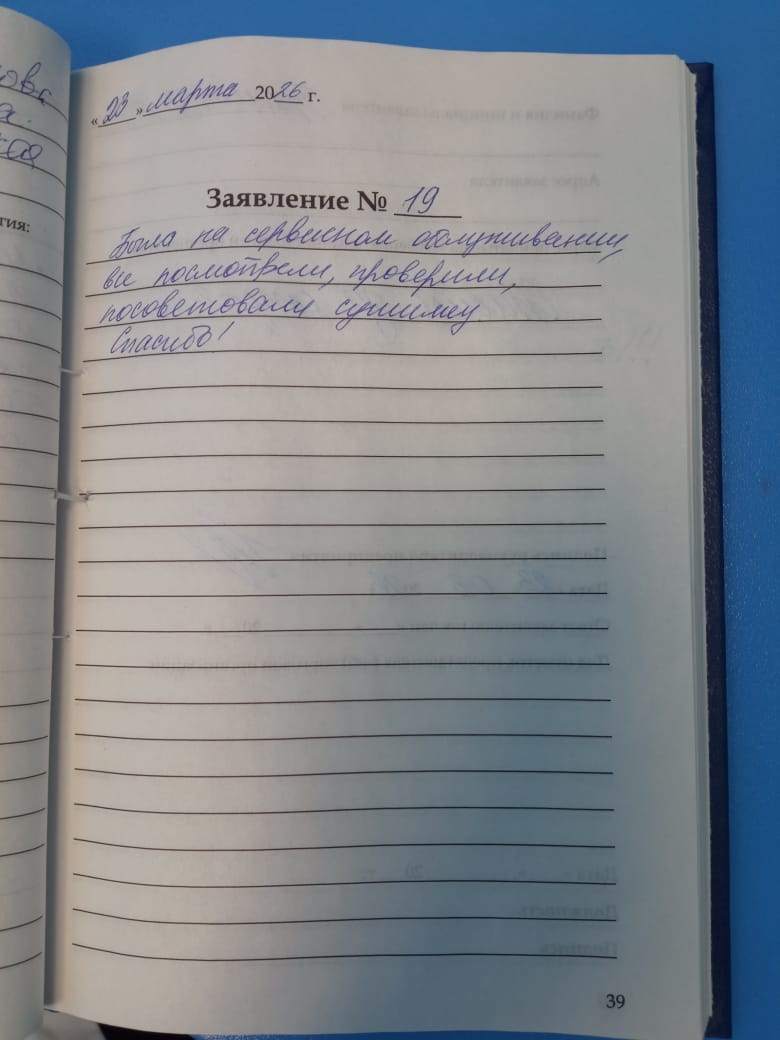 «23» марта 2026 г.
Заявление № 19
Была на сервисном обслуживании,
все посмотрели, проверили,
посоветовали сушилку
Спасибо!
тия:
39